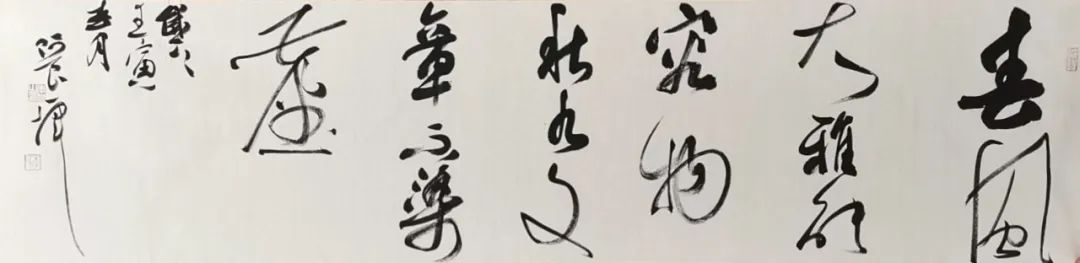 春風
大雅能
容物
秋水文
章不染
塵
歲次
壬寅
月